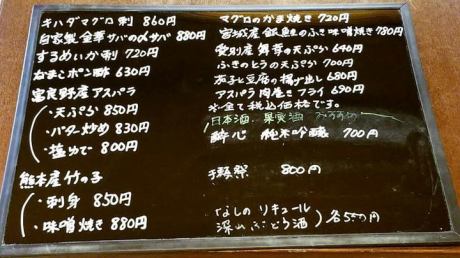 キハダマグロ刺 860円
自家製 金華サバの〆サバ 880円
するめいか刺 720円
なまこポン酢 630円
富良野産アスパラ
・天ぷら 850円
・バター炒め 830円
・塩ゆで 800円
熊本産竹の子
・刺身 850円
・味噌焼き 880円
マグロのかま焼き 720円
宮城産 銀鮭のふき味噌焼き 780円
愛別産 舞茸の天ぷら 640円
ふきのとうの天ぷら 700円
茄子と豆腐の揚げ出し 680円
アスパラ肉巻きフライ 690円
※全て税込価格です。
日本酒・果実酒
酔心 純米吟醸 700円
獺祭 800円
なしのリキュール
深山ぶどう酒 各550円